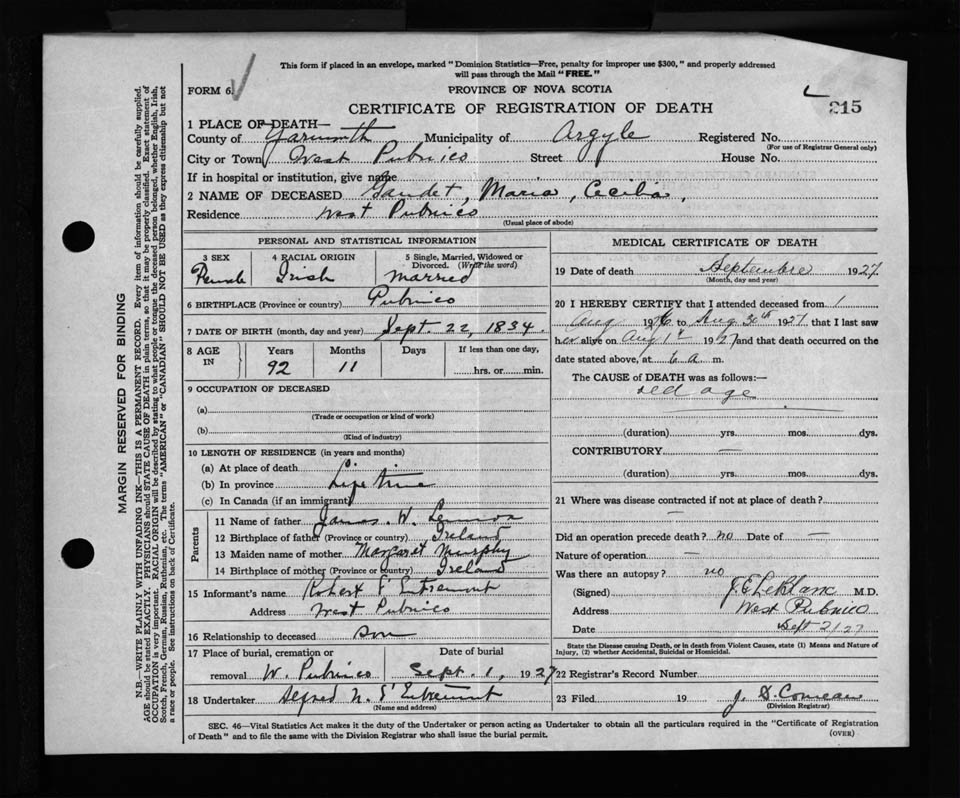 This form if placed in an envelope, marked "Dominion Statistics—Free, penalty for improper use $300," and properly addressed
will pass through the Mail "FREE."
FORM 6.
PROVINCE OF NOVA SCOTIA
CERTIFICATE OF REGISTRATION OF DEATH
215
1 PLACE OF DEATH—
County of Yarmouth Municipality of Argyle Registered No.
(For use of Registrar General only)
City or Town West Pubnico Street House No.
If in hospital or institution, give name
2 NAME OF DECEASED Gaudet, Maria, Cecilia,
Residence West Pubnico
(Usual place of abode)
PERSONAL AND STATISTICAL INFORMATION
3 SEX 4 RACIAL ORIGIN 5 Single, Married, Widowed or Divorced. (Write the word)
Female Irish Married
6 BIRTHPLACE (Province or country) Pubnico
7 DATE OF BIRTH (month, day and year) Sept. 22, 1834.
8 AGE IN Years Months Days If less than one day,
92 11 hrs. or min.
9 OCCUPATION OF DECEASED
(a)
(Trade or occupation or kind of work)
(b)
(Kind of industry)
10 LENGTH OF RESIDENCE (in years and months)
(a) At place of death
(b) In province Life time
(c) In Canada (if an immigrant)
Parents
11 Name of father James. W. Lennox
12 Birthplace of father (Province or country) Ireland
13 Maiden name of mother Margaret Murphy
14 Birthplace of mother (Province or country) Ireland
15 Informant's name Robert D'Entremont
Address West Pubnico
16 Relationship to deceased son
17 Place of burial, cremation or Date of burial
removal W. Pubnico Sept. 1, 1927
18 Undertaker Alfred N. D'Entremont
(Name and address)
MEDICAL CERTIFICATE OF DEATH
19 Date of death Septembre 1927
(Month, day and year)
20 I HEREBY CERTIFY that I attended deceased from 1
Aug 1926 to Aug 30th 1927, that I last saw
her alive on Aug 1st 1927 and that death occurred on the
date stated above, at 6 a. m.
The CAUSE of DEATH was as follows:—
old age
(duration) yrs. mos. dys.
CONTRIBUTORY —
(duration) yrs. mos. dys.
21 Where was disease contracted if not at place of death? —
Did an operation precede death? no Date of —
Nature of operation —
Was there an autopsy? no
(Signed) J.E. LeBlanc M.D.
Address West Pubnico
Date Sept 2/27
State the Disease causing Death, or in death from Violent Causes, state (1) Means and Nature of
Injury, (2) whether Accidental, Suicidal or Homicidal.
22 Registrar's Record Number
23 Filed 19 J. D. Comeau
(Division Registrar)
SEC. 46—Vital Statistics Act makes it the duty of the Undertaker or person acting as Undertaker to obtain all the particulars required in the "Certificate of Registration
of Death" and to file the same with the Division Registrar who shall issue the burial permit.
(OVER)
MARGIN RESERVED FOR BINDING
N.B.—WRITE PLAINLY WITH UNFADING INK—THIS IS A PERMANENT RECORD. Every item of information should be carefully supplied.
AGE should be stated EXACTLY. PHYSICIANS should STATE CAUSE OF DEATH in plain terms, so that it may be properly classified. Exact statement of
OCCUPATION is very important. RACIAL ORIGIN will be described by stating to what people or tongue the deceased person belonged, whether English, Irish,
Scotch, French, German, Russian, Ruthenian, etc. The terms "AMERICAN" or "CANADIAN" SHOULD NOT BE USED as they express citizenship but not
a race or people. See instructions on back of Certificate.